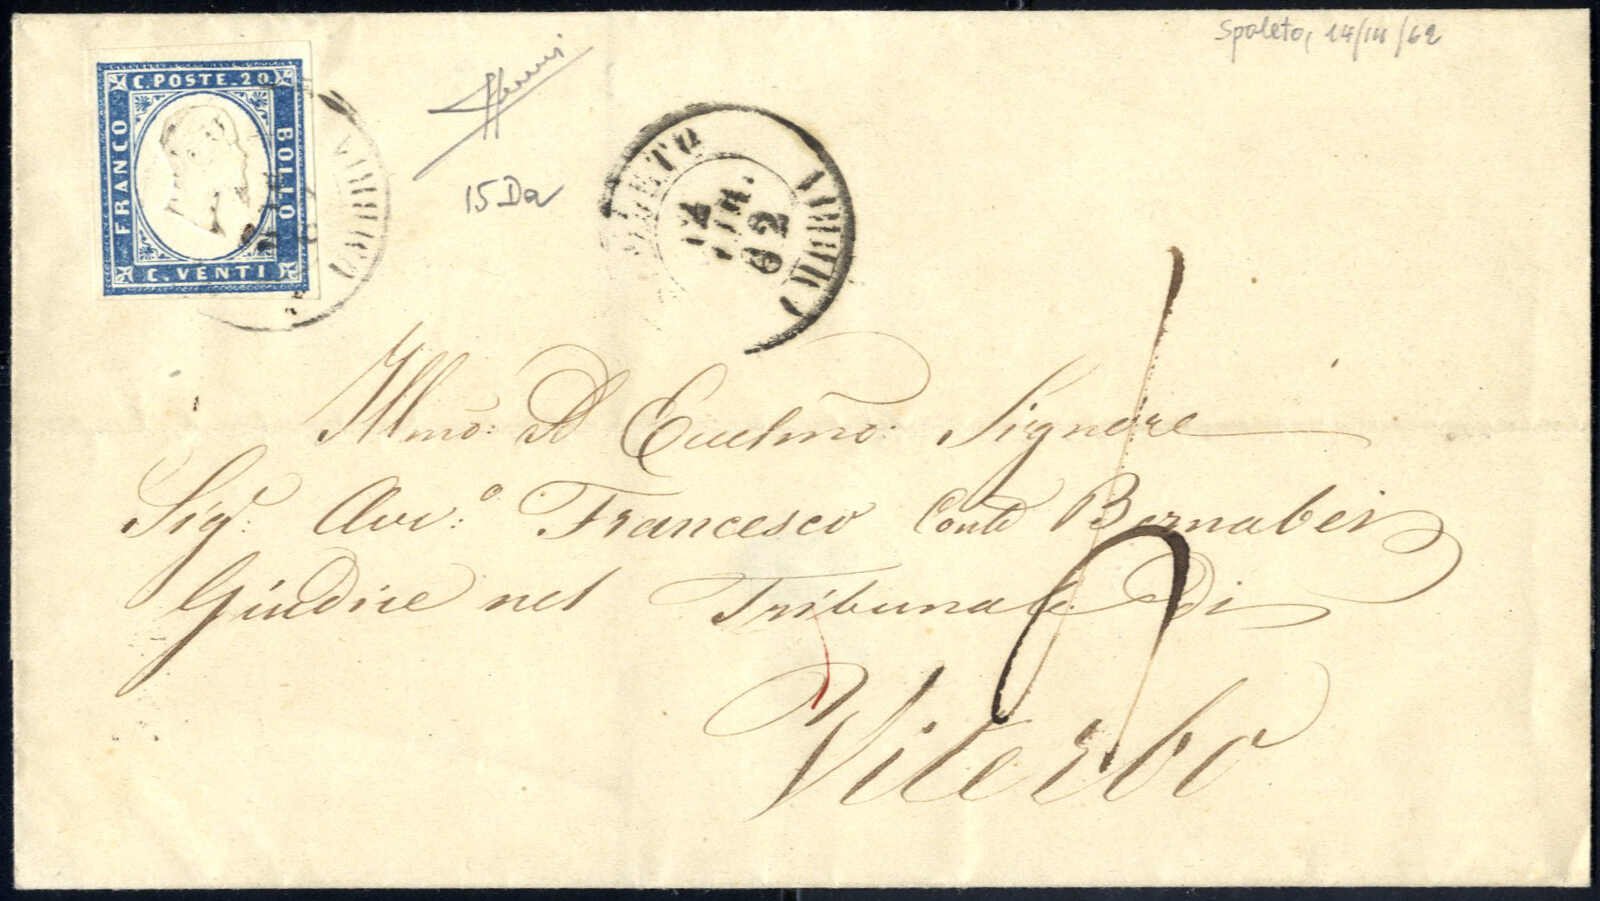 Spoleto, 14/III/62
C. POSTE. 20.
FRANCO
BOLLO
C. VENTI
15Da
14
62
UMBRIA
Illmo: Ecclmo: Signore
Sig: Avv:o Francesco Conte Bernabei
Giudice nel Tribunale di
Viterbo